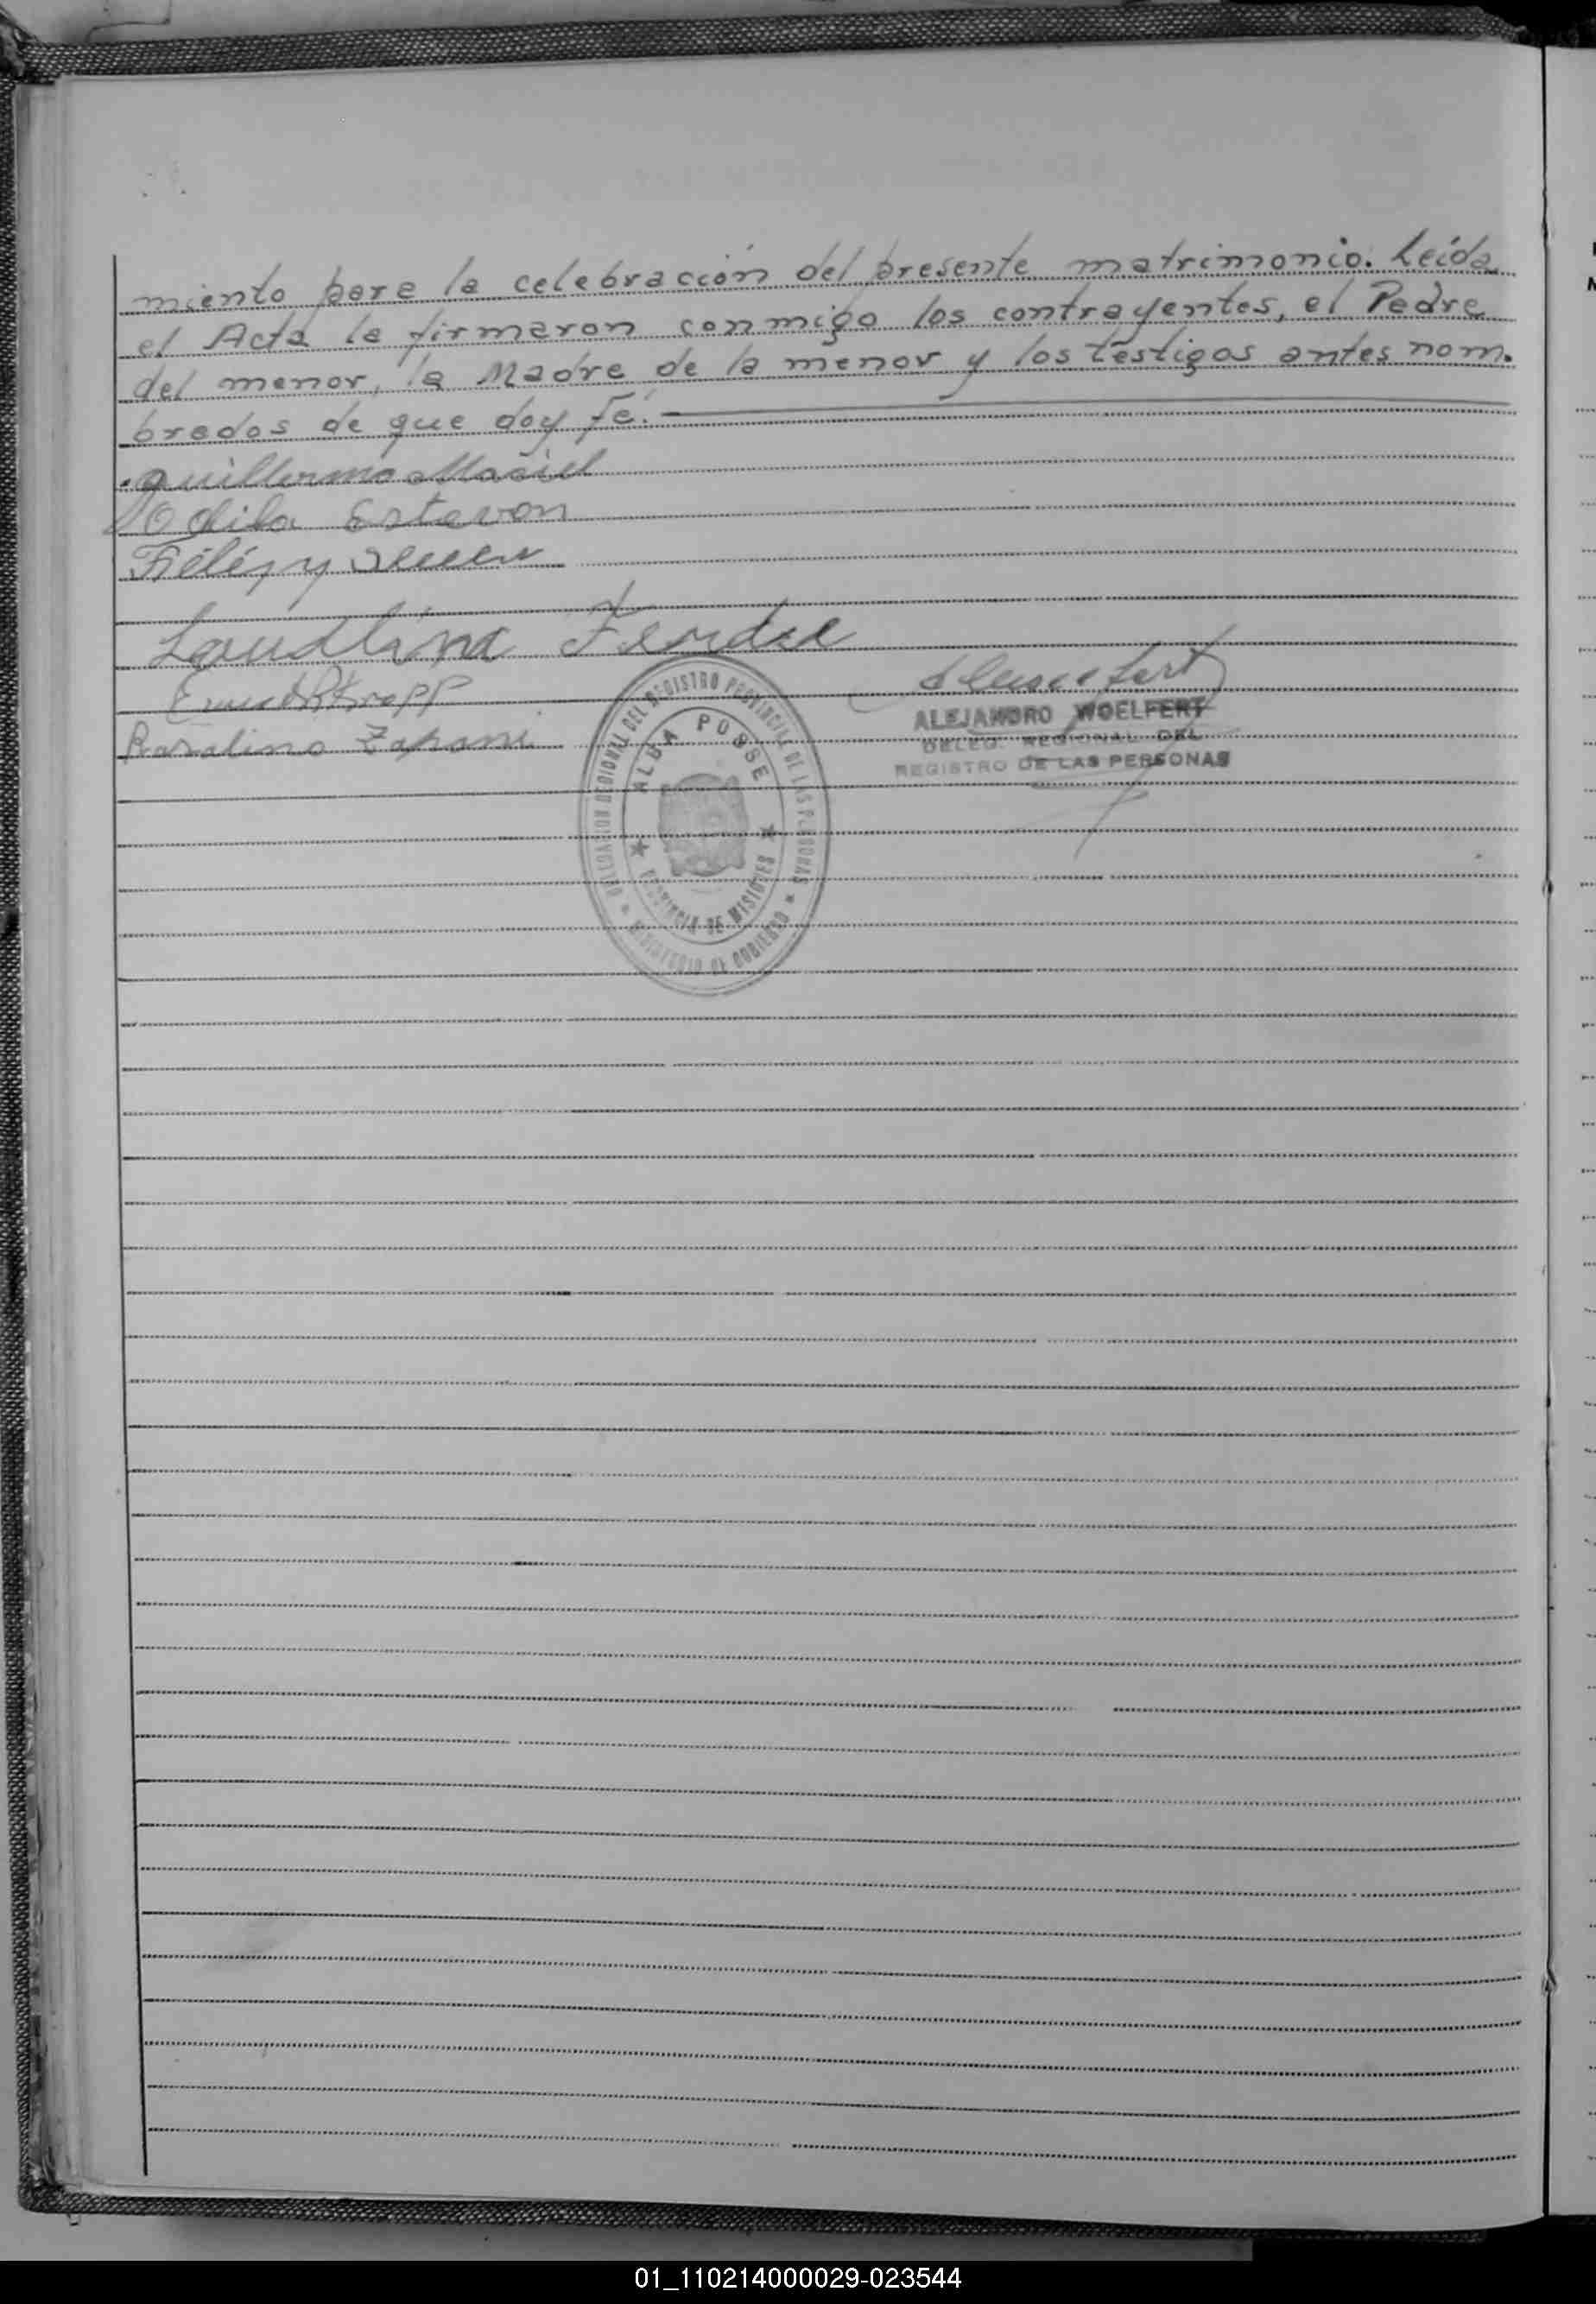 miento para la celebración del presente matrimonio. Leída
el Acta la firmaron conmigo los contrayentes, el Padre
del menor, la Madre de la menor y los testigos antes nom-
brados de que doy Fé.
Guillermo Maciel
Odila Estevon
Laudlina
Kropp
Rosalino
ALEJANDRO WOELFERT
DELEG. REGIONAL DEL
REGISTRO DE LAS PERSONAS
DELEGACION REGIONAL DEL REGISTRO PROVINCIAL DE LAS PERSONAS
ALBA POSSE
PROVINCIA DE MISIONES
MINISTERIO DE GOBIERNO
01_110214000029-023544